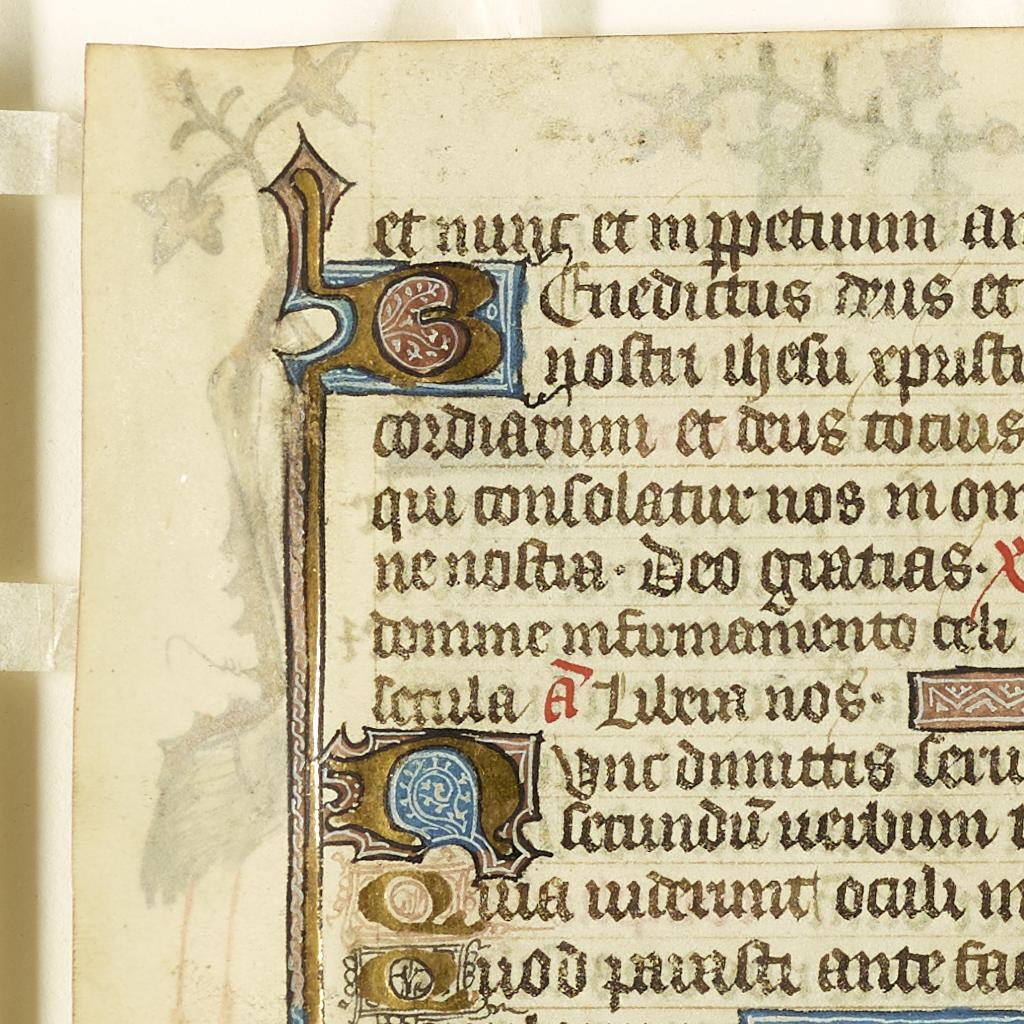 et nunc et in ppetuum am
Benedictus deus et
nostri ihesu xpristi
cordiarum et deus tocius
qui consolatur nos in om
ne nostra · Deo gratias ·
domine in firmamento celi
secula a Libera nos ·
Nunc dimittis seru
secundū uerbum t
Quia uiderunt oculi m
Quod parasti ante fac